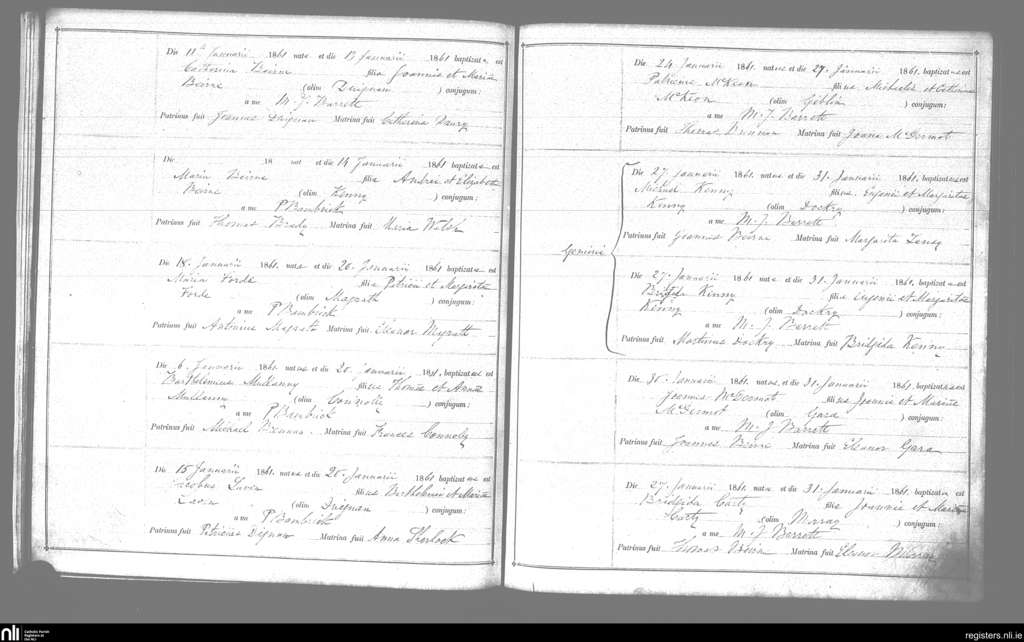 Die 11a Januarii 1861 nata et die 13 Januarii 1861 baptizata est
Catherina Beirne filia Joannis et Maria
Beirne (olim Duignan ) conjugum:
a me M. J. Barrett
Patrinus fuit Joannes Duignan Matrina fuit Catherina
Die 18 nat et die 14 Januarii 1861 baptizata est
Maria Beirne filia Andrei et Elizabeth
Beirne (olim Kenny ) conjugum:
a me P Bambrick
Patrinus fuit Thomas Brady Matrina fuit Maria Walsh
Die 18. Januarii 1861. nata et die 20. Januarii 1861 baptizata est
Maria Forde filia Patricii et Margarita
Forde (olim Magrath ) conjugum:
a me P Bambrick
Patrinus fuit Antonius Magrath Matrina fuit Eleanor Magrath
Die 6. Januarii 1861. natus et die 20 Januarii 1861, baptizatus est
Bartholomeus Mullanny filius Thomæ et Annæ
Mullanny (olim Connolly ) conjugum:
a me P Bambrick
Patrinus fuit Michael Brennan. Matrina fuit Frances Connolly
Die 15 Januarii 1861. natus et die 20. Januarii 1861 baptizatus est
Jacobus Lavin filius Bartholomei et Maria
Lavin (olim Duignan ) conjugum:
a me P Bambrick
Patrinus fuit Patricius Dignan Matrina fuit Anna Sherlock
Die 24. Januarii 1861. natus et die 27. Januarii 1861. baptizatus est
Patricius McKeon filius Michaelis et Catherina
McKeon (olim Giblin ) conjugum:
a me M. J. Barrett
Patrinus fuit Thomas Brennan Matrina fuit Joanna McDermot
Die 27. Januarii 1861. natus et die 31. Januarii 1861. baptizatus est
Michael Kenny filius Eugenii et Margaritæ
Kenny (olim Dockry ) conjugum:
a me M. J. Barrett
Patrinus fuit Joannes Beirne Matrina fuit Margarita
Gemini
Die 27. Januarii 1861 nata et die 31. Januarii 1861, baptizata est
Bridgida Kenny filia Eugenii et Margaritæ
Kenny (olim Dockry ) conjugum:
a me M. J. Barrett
Patrinus fuit Martinus Dockry Matrina fuit Bridgida Kenny
Die 30. Januarii 1861. natus et die 31. Januarii 1861. baptizatus est
Joannes McDermot filius Joannis et Mariæ
McDermot (olim Gara ) conjugum:
a me M. J Barrett
Patrinus fuit Joannes Beirne Matrina fuit Eleanor Gara
Die 27. Januarii 1861. nata et die 31. Januarii 1861. baptizata est
Bridgida Carty filia Joannis et Mariæ
Carty (olim Murray ) conjugum:
a me M. J Barrett
Patrinus fuit Thomas Matrina fuit Eleanor Murray
nli Catholic Parish
Registers at
the NLI
registers.nli.ie